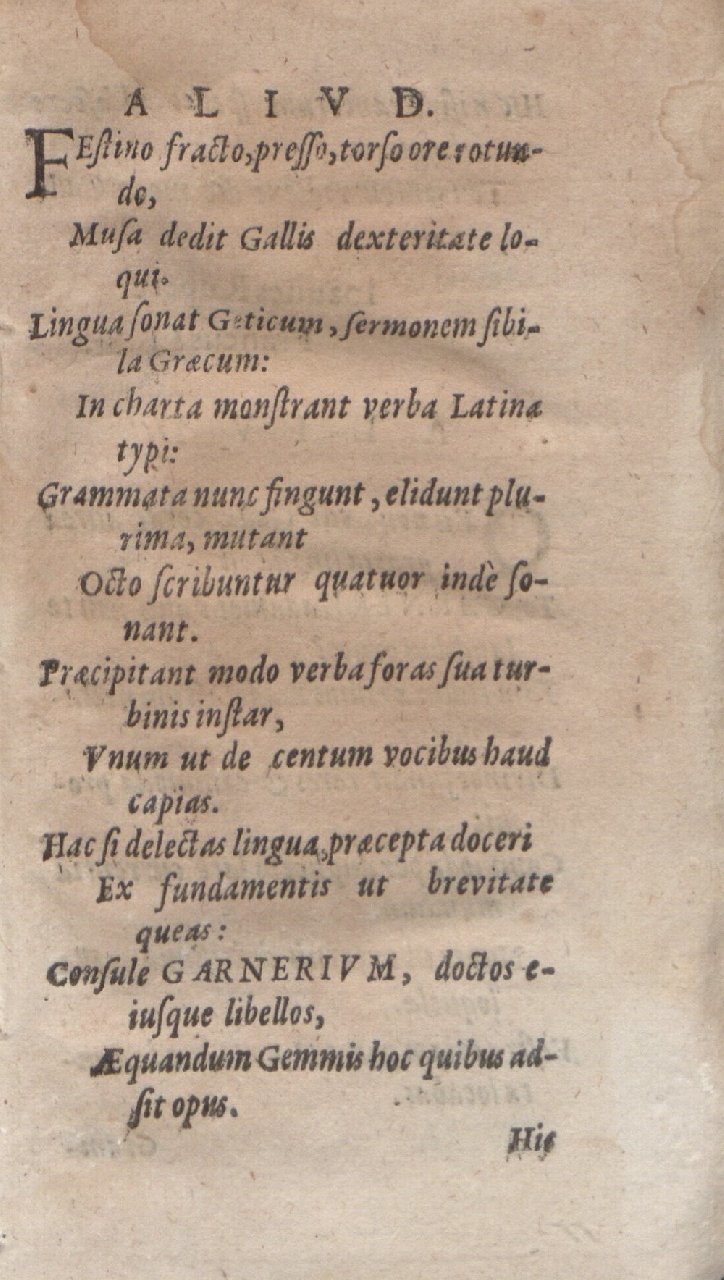 ALIVD.
FEſtino fracto, preſſo, torſo ore rotun-
do,
Muſa dedit Gallis dexteritate lo-
qui.
Lingua ſonat Geticum, ſermonem ſibi-
la Græcum:
In charta monſtrant verba Latina
typi:
Grammata nunc fingunt, elidunt plu-
rima, mutant
Octo ſcribuntur quatuor indè ſo-
nant.
Præcipitant modo verba foras ſua tur-
binis inſtar,
Vnum ut de centum vocibus haud
capias.
Hac ſi delectas lingua, præcepta doceri
Ex fundamentis ut brevitate
queas:
Conſule GARNERIVM, doctos e-
iuſque libellos,
Æquandum Gemmis hoc quibus ad-
ſit opus.
Hic